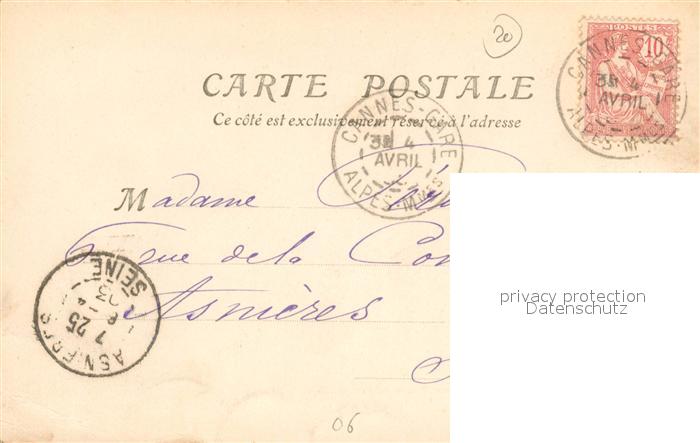 20
CARTE POSTALE
Ce côté est exclusivement réservé à l'adresse
POSTES
10
CANNES-GARE
4
AVRIL
ALPES-Mmes
CANNES-GARE
4
AVRIL
ALPES-Mmes
Madame
rue de la
Asnières
ASNIERES
7 25
6 - 4
03
SEINE
privacy protection
Datenschutz
06